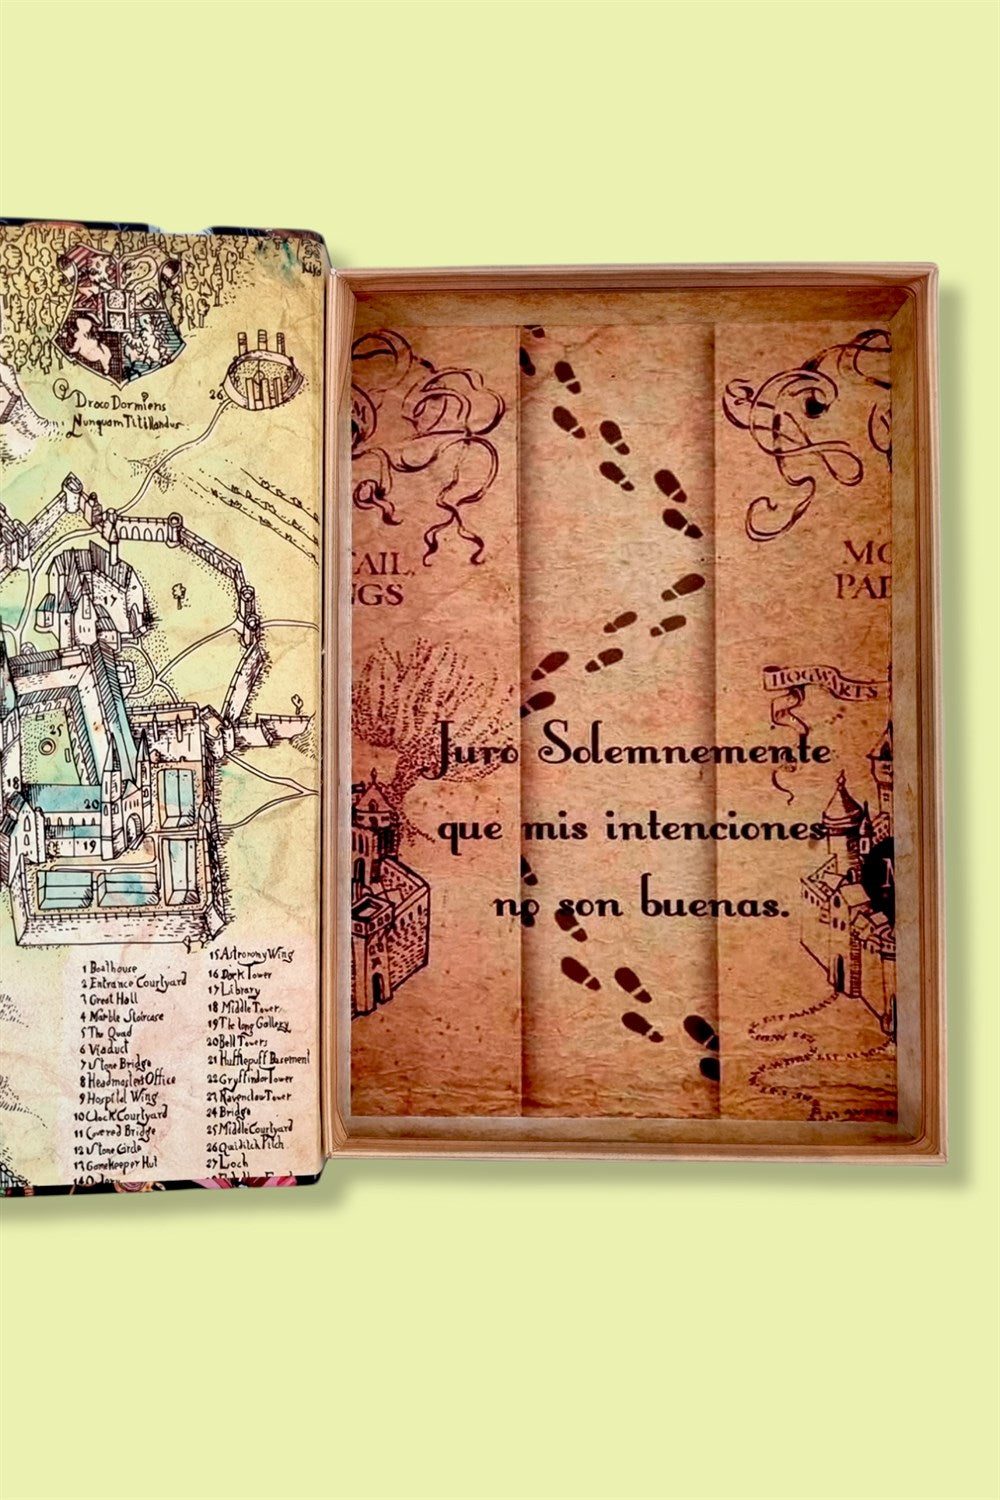 Draco Dormiens
Nunquam Titillandus
26
17
25
18
20
19
1 Boathouse
2 Entrance Courtyard
3 Great Hall
4 Marble Staircase
5 The Quad
6 Viaduct
7 Stone Bridge
8 Headmasters Office
9 Hospital Wing
10 Clock Courtyard
11 Covered Bridge
12 Stone Circle
13 Gamekeeper Hut
15 Astronomy Wing
16 Dark Tower
17 Library
18 Middle Tower
19 The long Gallery
20 Bell Towers
21 Hufflepuff Basement
22 Gryffindor Tower
23 Ravenclaw Tower
24 Bridge
25 Middle Courtyard
26 Quidditch Pitch
27 Loch
TAIL,
NGS
MO
PAD
HOGWARTS
Juro Solemnemente
que mis intenciones
no son buenas.